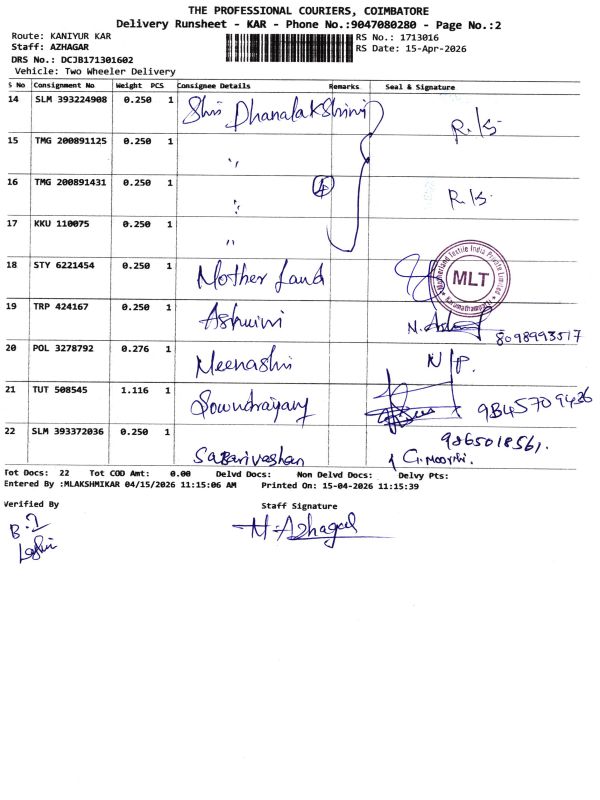 THE PROFESSIONAL COURIERS, COIMBATORE
Delivery Runsheet - KAR - Phone No.:9047080280 - Page No.:2
Route: KANIYUR KAR RS No.: 1713016
Staff: AZHAGAR RS Date: 15-Apr-2026
DRS No.: DCJB171301602
Vehicle: Two Wheeler Delivery
S No Consignment No Weight PCS Consignee Details Remarks Seal & Signature
14 SLM 393224908 0.250 1 Shri Dhanalakshmi R.K.
15 TMG 200891125 0.250 1 "
16 TMG 200891431 0.250 1 " 4 R.K.
17 KKU 110075 0.250 1 "
18 STY 6221454 0.250 1 Mother Land MLT
Motherland Textile India Private Limited
Karumathampatti
19 TRP 424167 0.250 1 Ashwini 8098993517
20 POL 3278792 0.276 1 Meenashi N/P.
21 TUT 508545 1.116 1 9845709426
22 SLM 393372036 0.250 1 Sabarivashan 9865018561.
G. Moorthi.
Tot Docs: 22 Tot COD Amt: 0.00 Delvd Docs: Non Delvd Docs: Delvy Pts:
Entered By :MLAKSHMIKAR 04/15/2026 11:15:06 AM Printed On: 15-04-2026 11:15:39
Verified By Staff Signature
M. Azhagar